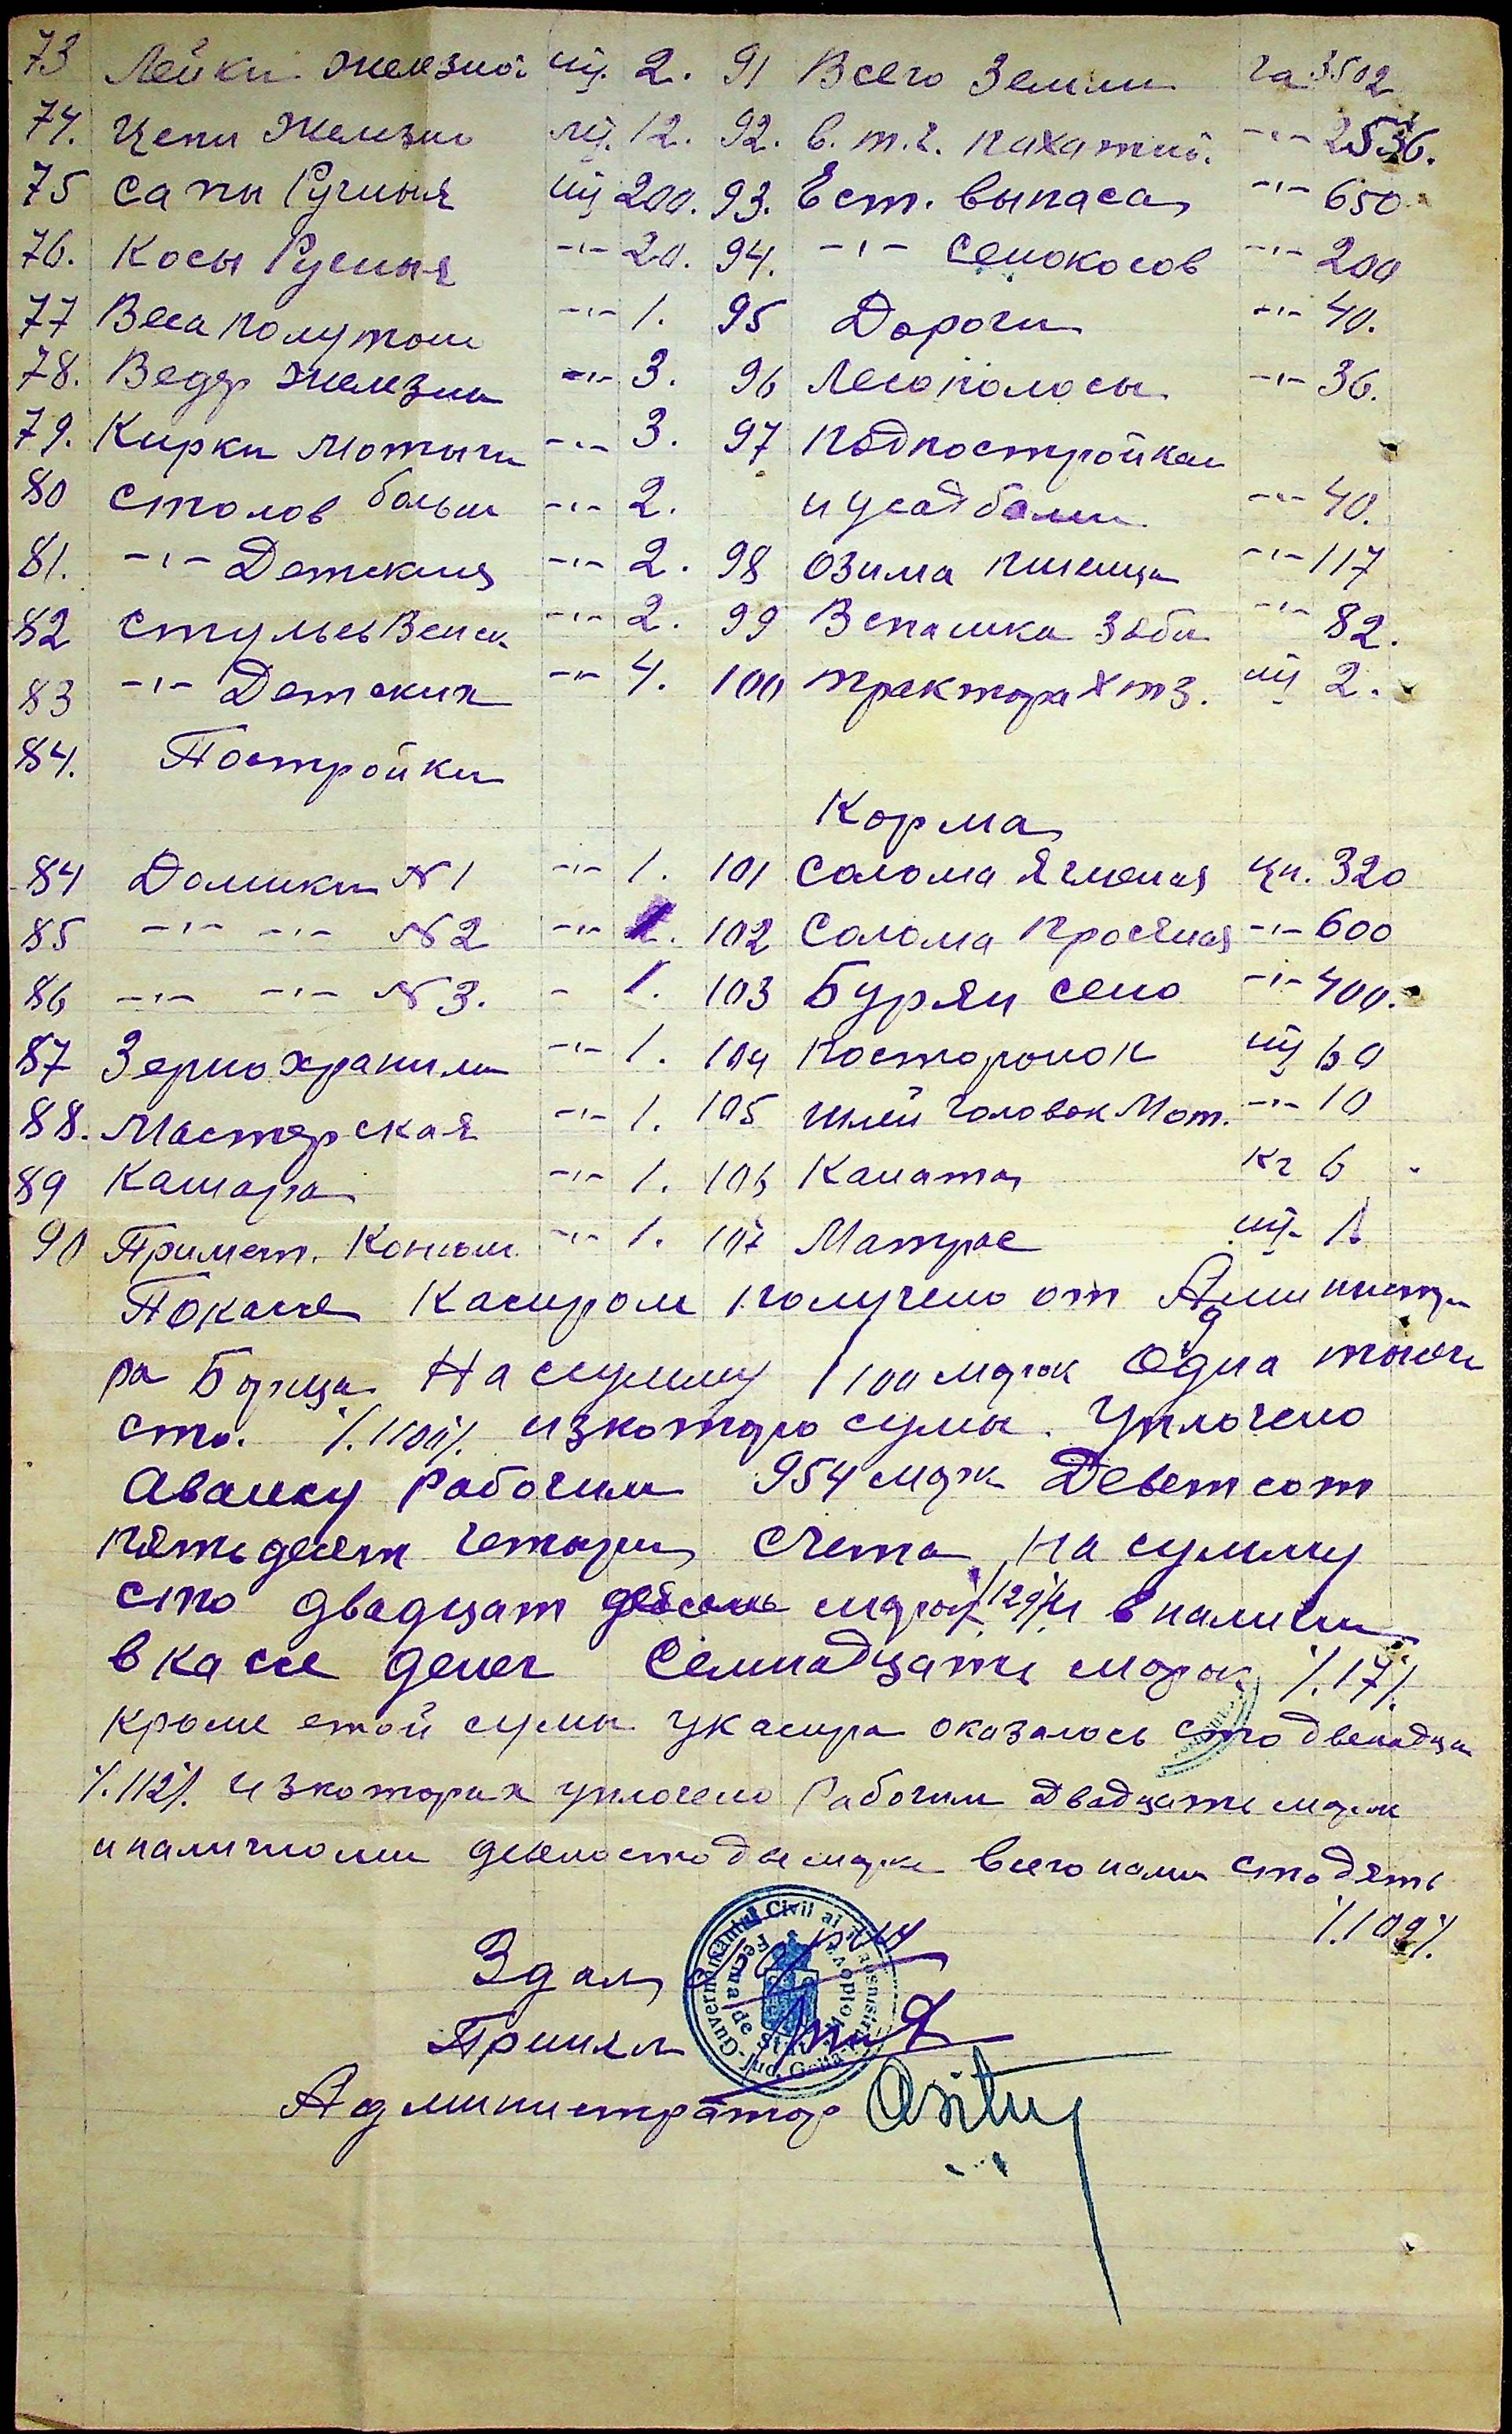 73 Лейки железной шт. 2. 91 Всего Земли га 3502
74. Цепи железн шт. 12. 92. в. т. ч. пахатной. -"- 2536.
75 Сапы Ручныя шт 200. 93. Ест. выпаса -"- 650
76. Косы Ручныя -"- 20. 94. -"- сенокосов -"- 200
77 Веса полутон -"- 1. 95 Дороги -"- 40.
78. Ведер железн -"- 3. 96 Лесополосы -"- 36.
79. Кирки Мотыги -"- 3. 97 под постройкам
80 Столов больш -"- 2. и усадбами -"- 40.
81. -"- Детския -"- 2. 98 озима пшеница -"- 117
82 Стульев Венск. -"- 2. 99 Вспашка зяби -"- 82.
83 -"- Детских -"- 4. 100 трактора ХТЗ. шт 2.
84. Постройки
Корма
84 Домики №1 -"- 1. 101 Солома Ячменая цн. 320
85 -"- -"- №2 -"- 1. 102 Солома Просяная -"- 600
86 -"- -"- №3. - 1. 103 Бурян сено -"- 400.
87 Зернохранили -"- 1. 104 посторонок шт 60
88. Мастерская -"- 1. 105 шлей головок Мот. -"- 10
89 Кашара -"- 1. 106 Каната кг 6
90 Примет. Конюш -"- 1. 107 Матрас шт. 1.
По кассе Касиром получено от Админист
ра Борица На сумму 1100 марок Одна тысяч
сто. /.1100/. из которо сумы. Уплочено
Авансу Рабочим 954 марк Девятсот
пятьдесят четыри счета на сумму
сто двадцат девять марок /129/ и в наличи
в кассе денег Семнадцать марок /.17/.
кроме етой сумы у касира оказалось сто двенадца
/.112/. из которых уплочено Рабочим Двадцать марок
и наличтоми девеностодве марк всего налич стодять
/.109/.
Здал
Принял
Администратор
Guvernamantul Civil al Transnistriei
Jud. Golta
Ferma de Stat